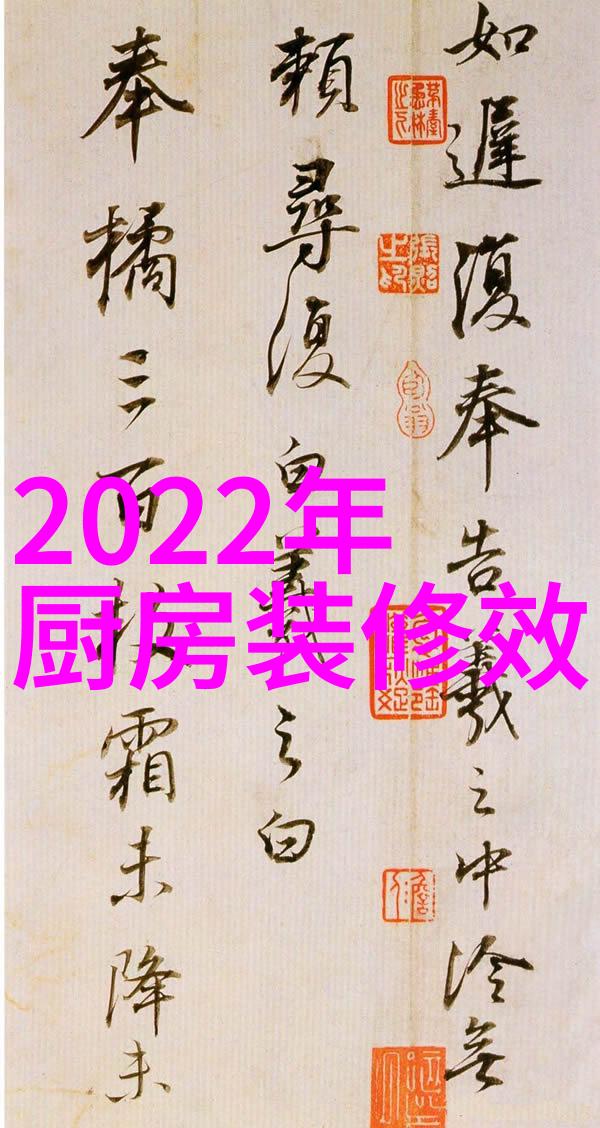 如遲復奉告羲之中冷無
賴尋復白羲之白
奉橘三百枚霜未降未
2022年
厨房装修效